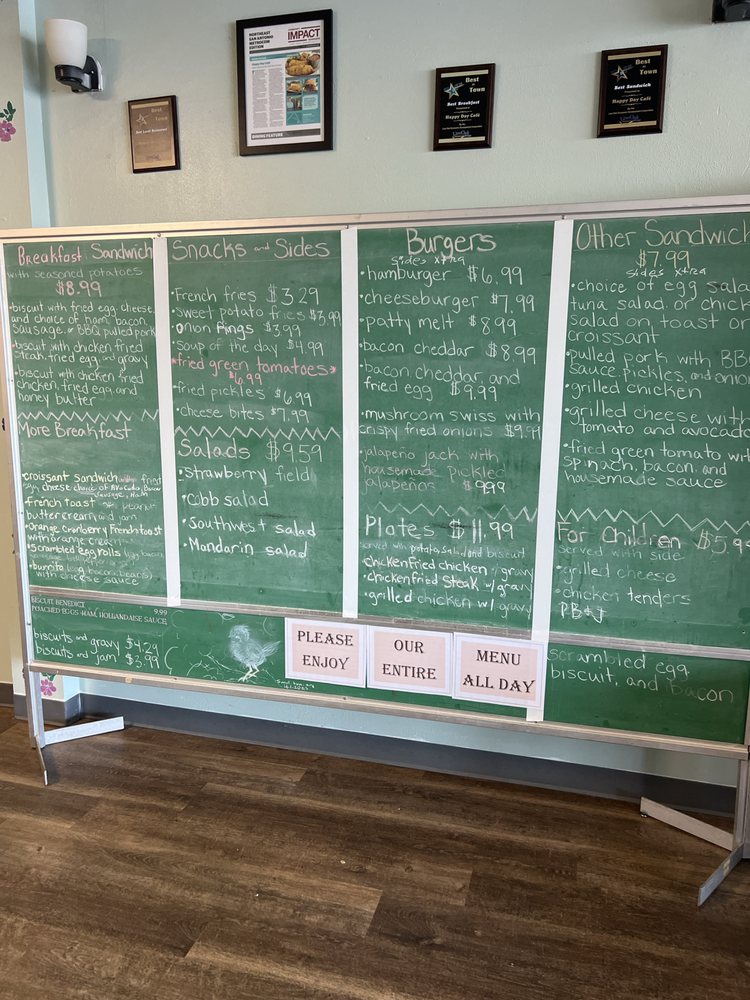 Best in Town
Best Local Restaurant
NORTHEAST
SAN ANTONIO
METROCOM
EDITION
IMPACT
DINING FEATURE
Best in Town
Best Breakfast
Happy Day Café
Best in Town
Best Sandwich
Happy Day Café
Breakfast Sandwich
with seasoned potatoes
$8.99
•biscuit with fried egg, cheese,
and choice of ham, bacon,
sausage, or BBQ pulled pork
•biscuit with chicken fried
steak, fried egg, and gravy
•biscuit with chicken fried
chicken, fried egg, and
honey butter
More Breakfast
•croissant sandwich with fried
egg, cheese choice of Avocado, Bacon
Sausage, Ham
•French toast with peanut
butter cream and jam
•Orange Cranberry French toast
with orange cream
•scrambled egg rolls
•burrito (egg, bacon, beans)
with cheese sauce
BISCUIT BENEDICT 9.99
POACHED EGGS, HAM, HOLLANDAISE SAUCE
biscuits and gravy $4.29
biscuits and jam $3.99
Snacks and Sides
•French fries $3.29
sweet potato fries $3.99
•onion rings $3.99
•soup of the day $4.99
*fried green tomatoes*
$6.99
•fried pickles $6.99
•cheese bites $7.99
Salads $9.59
•strawberry field
•Cobb salad
•Southwest salad
•Mandarin salad
Burgers
sides xtra
•hamburger $6.99
•cheeseburger $7.99
•patty melt $8.99
•bacon cheddar $8.99
•bacon, cheddar, and
fried egg $9.99
•mushroom swiss with
crispy fried onions $9.99
•jalapeño jack with
housemade pickled
jalapeños $9.99
Plates $11.99
served with potato, salad, and biscuit
•chicken fried chicken w/ gravy
•chicken fried steak w/ gravy
•grilled chicken w/ gravy
PLEASE
ENJOY
OUR
ENTIRE
MENU
ALL DAY
Other Sandwich
$7.99
sides xtra
•choice of egg sala
tuna salad, or chick
salad on toast or
croissant
•pulled pork with BB
sauce, pickles, and onion
•grilled chicken
•grilled cheese with
tomato and avocado
•fried green tomato wit
spinach, bacon, and
housemade sauce
For Children $5.99
served with side
•grilled cheese
•chicken tenders
PB&J
scrambled egg
biscuit, and bacon